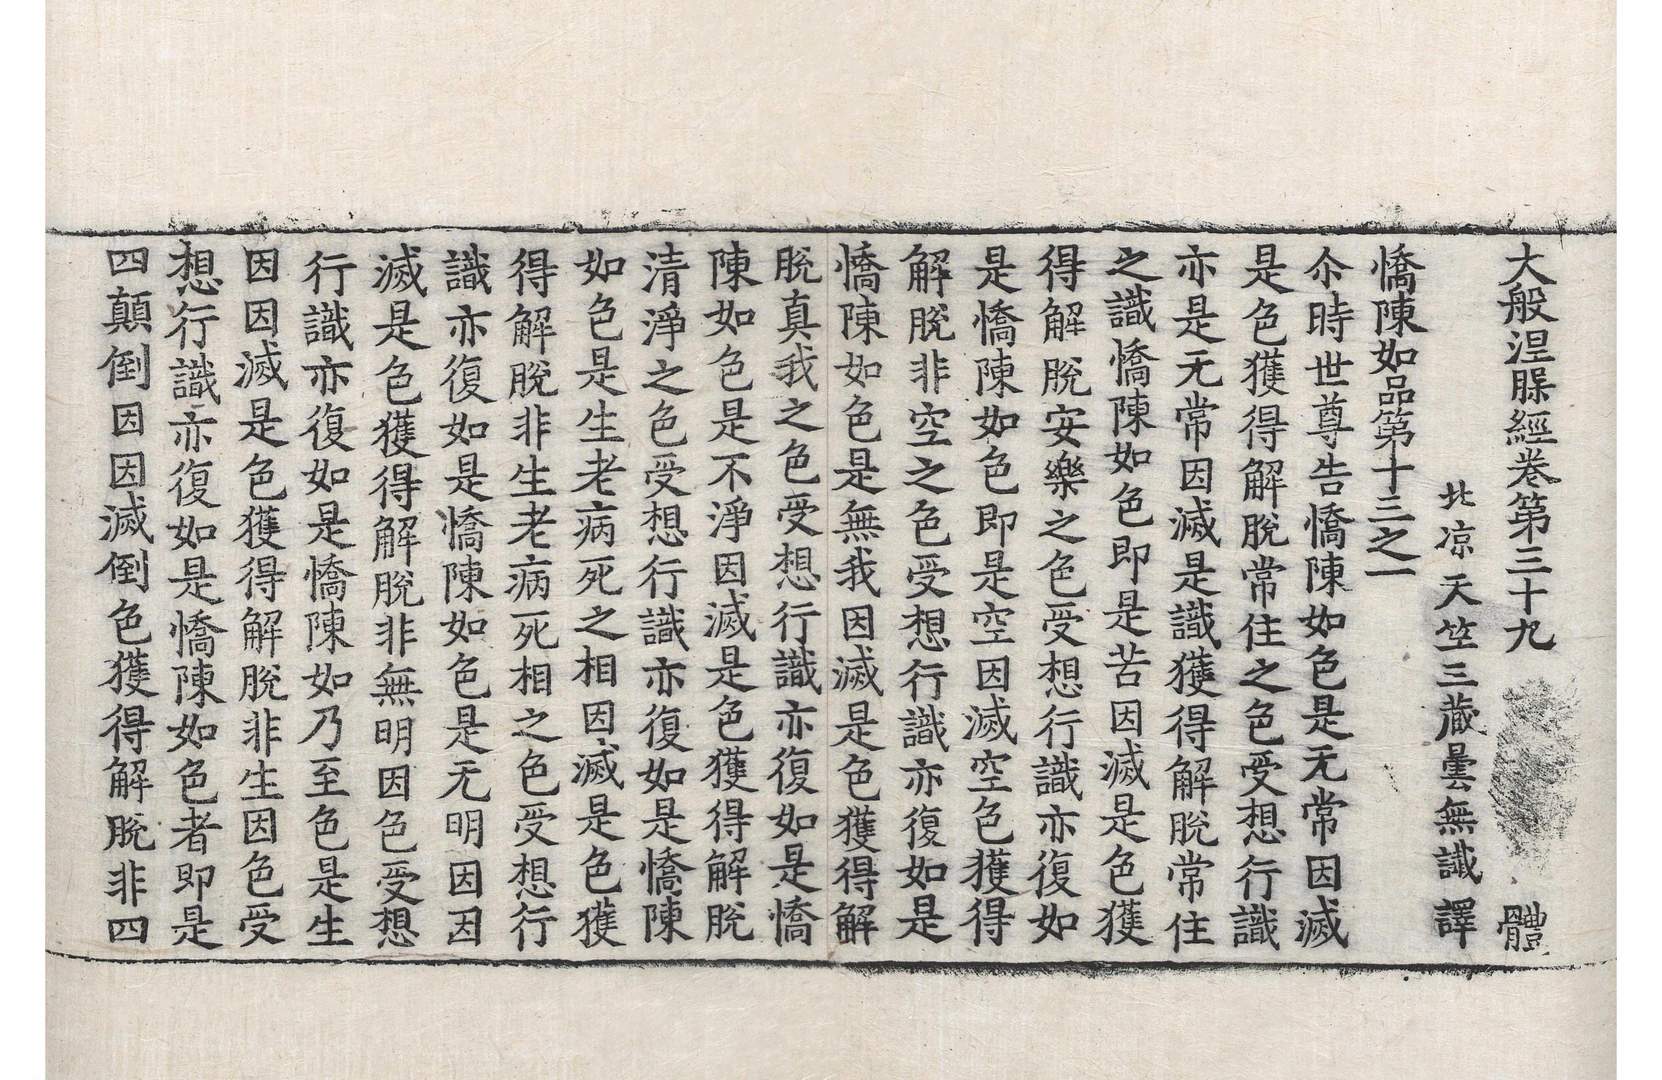 大般涅槃經卷第三十九 體
北涼天竺三藏曇無讖 譯
憍陳如品第十三之一
尒時世尊告憍陳如色是无常因滅
是色獲得解脫常住之色受想行識
亦是无常因滅是識獲得解脫常住
之識憍陳如色即是苦因滅是色獲
得解脫安樂之色受想行識亦復如
是憍陳如色即是空因滅空色獲得
解脫非空之色受想行識亦復如是
憍陳如色是無我因滅是色獲得解
脫真我之色受想行識亦復如是憍
陳如色是不淨因滅是色獲得解脫
清淨之色受想行識亦復如是憍陳
如色是生老病死之相因滅是色獲
得解脫非生老病死相之色受想行
識亦復如是憍陳如色是无明因因
滅是色獲得解脫非無明因色受想
行識亦復如是憍陳如乃至色是生
因因滅是色獲得解脫非生因色受
想行識亦復如是憍陳如色者即是
四顛倒因因滅倒色獲得解脫非四